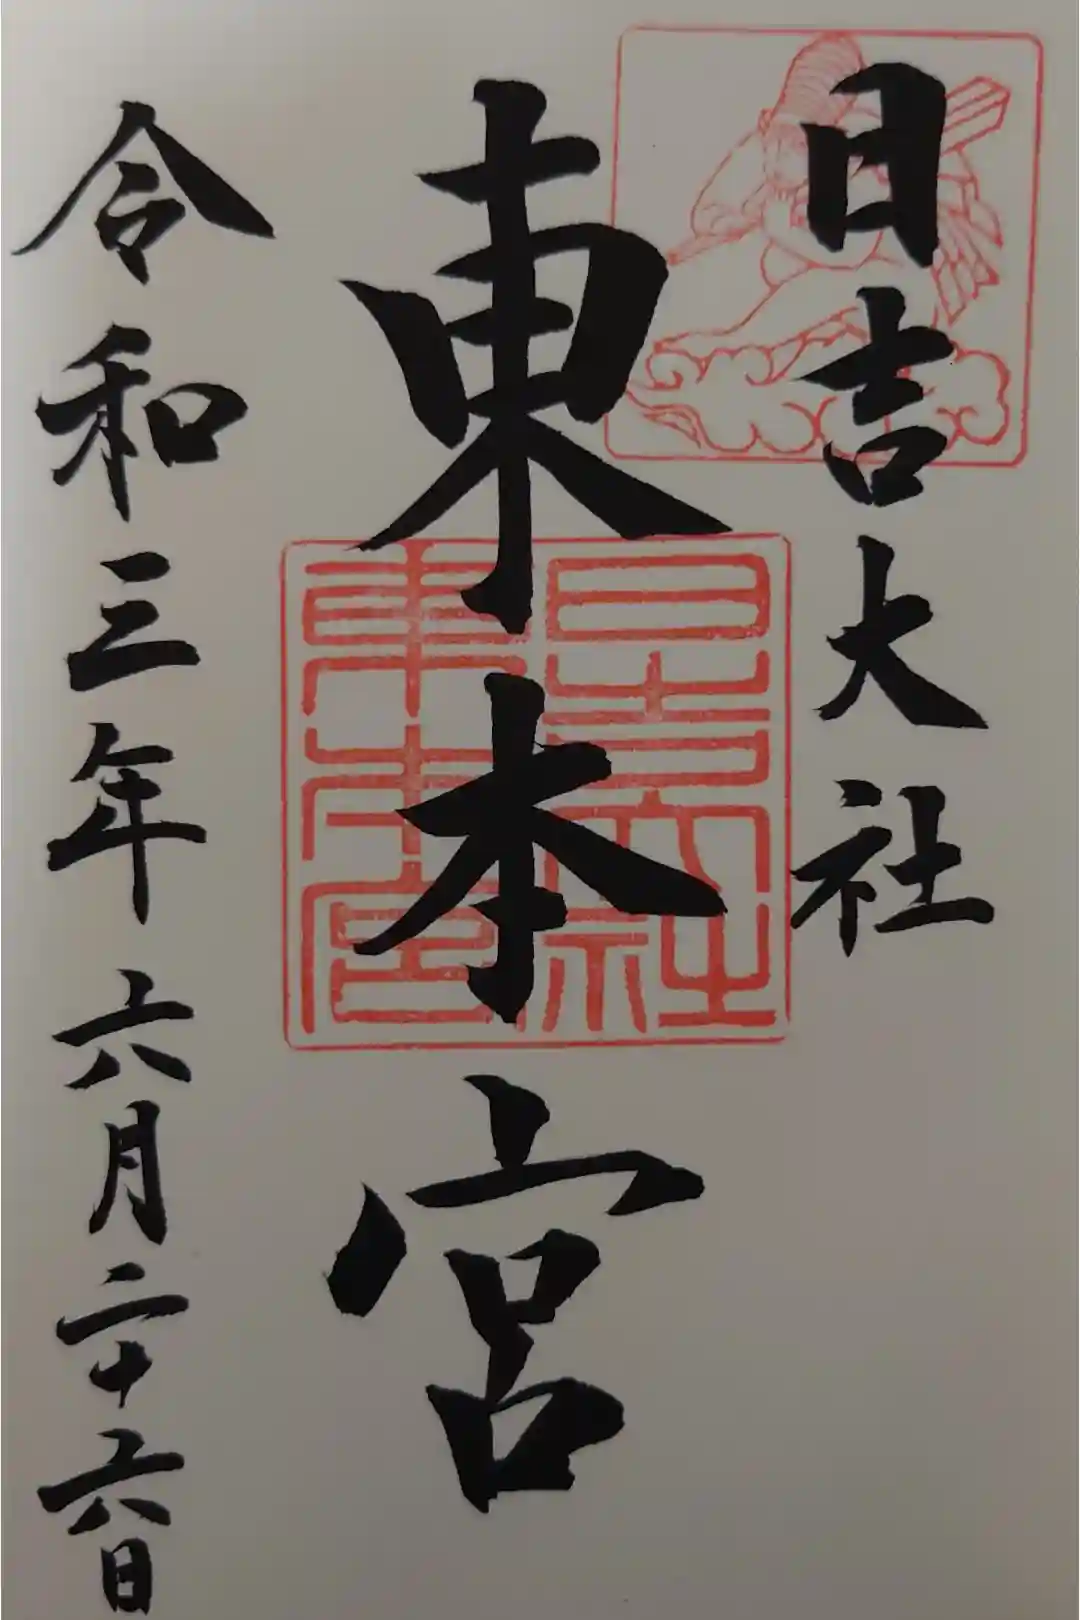 日吉大社
東本宮
令和三年六月二十六日
日吉大社
東本宮